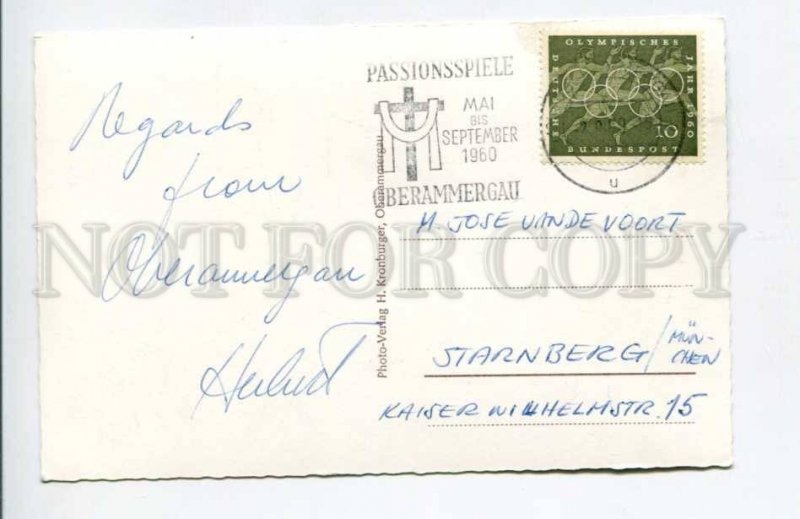 Regards
from
Oberammergau
Herbert
PASSIONSSPIELE
MAI
BIS
SEPTEMBER
1960
OBERAMMERGAU
OLYMPISCHES
JAHR 1960
DEUTSCHE
BUNDESPOST
10
u
Photo-Verlag H. Kronburger, Oberammergau
M. JOSE VANDE VOORT
STARNBERG/MÜN-
CHEN
KAISER WILHELMSTR. 15
NOT FOR COPY